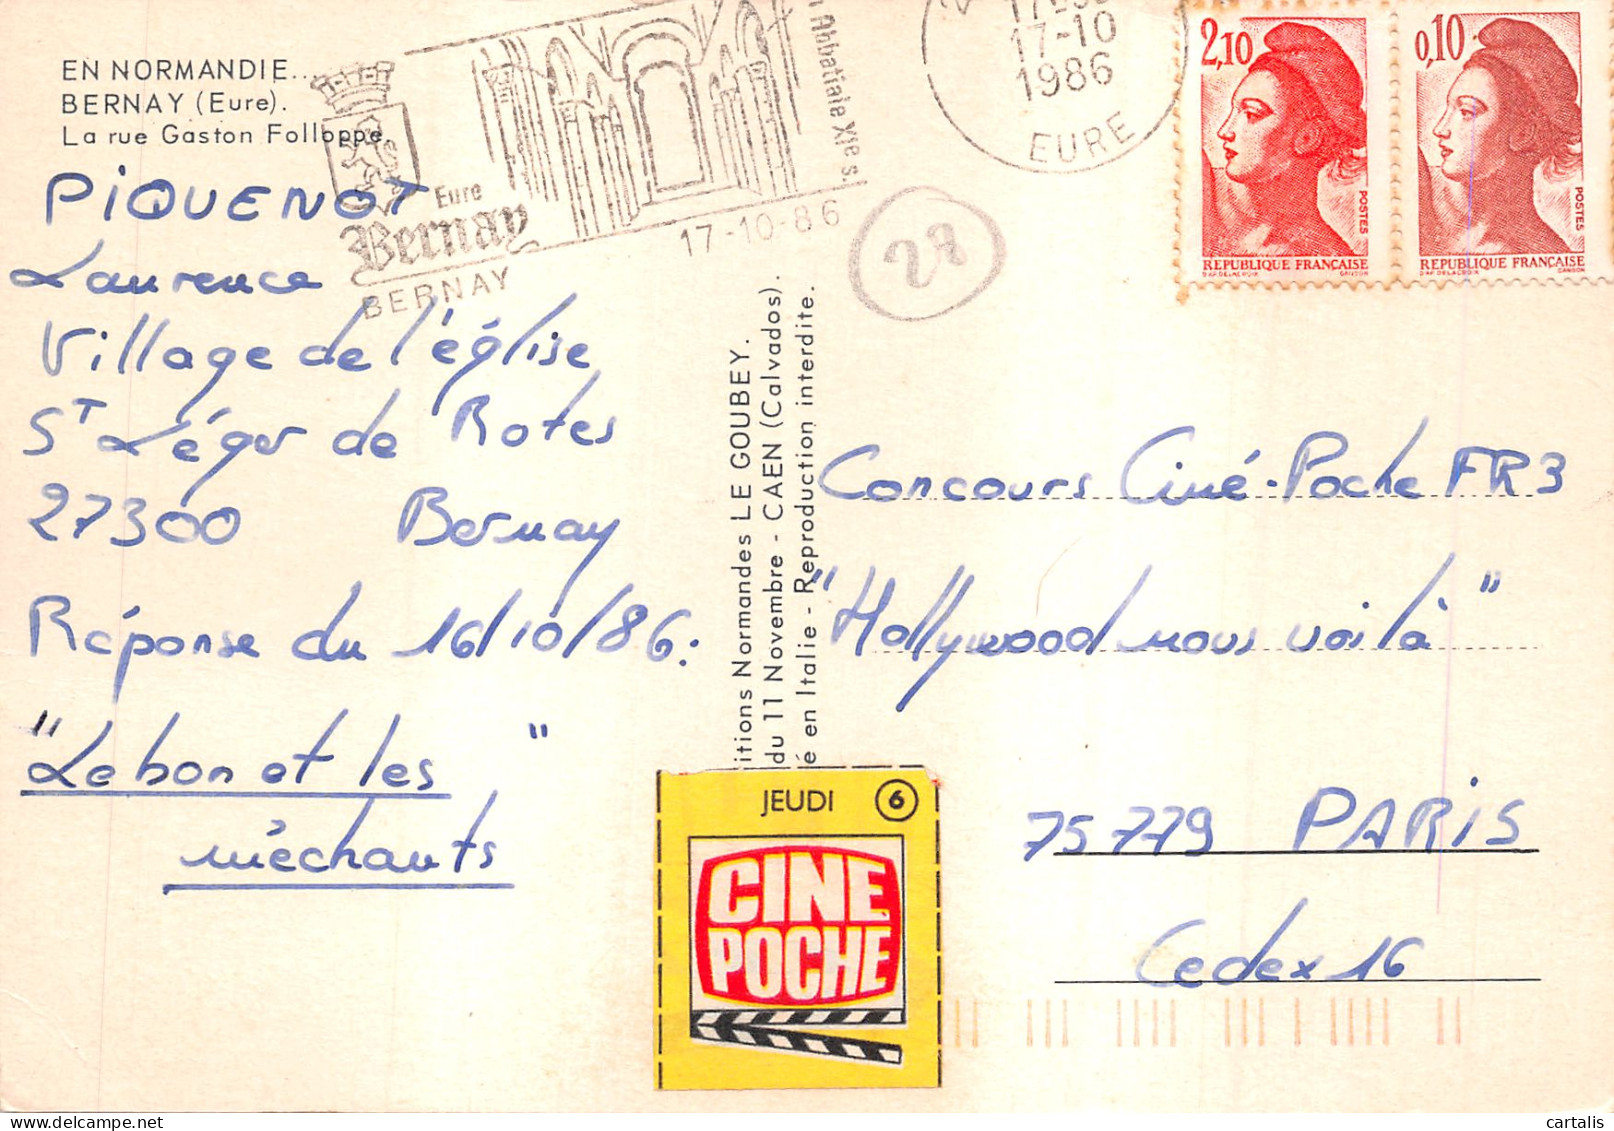 EN NORMANDIE...
BERNAY (Eure).
La rue Gaston Folloppe.
PIQUENOT
Laurence
Village de l'église
ST Léger de Rotes
27300 Bernay
Réponse du 16/10/86:
"Le bon et les "
méchants
Eure
Bernay
BERNAY
Abbatiale XIe s.
17-10-86
17-10
1986
EURE
27
2,10
POSTES
REPUBLIQUE FRANÇAISE
D'AP. DELACROIX GANDON
0,10
POSTES
REPUBLIQUE FRANÇAISE
D'AP. DELACROIX GANDON
itions Normandes LE GOUBEY.
du 11 Novembre - CAEN (Calvados)
é en Italie - Reproduction interdite.
Concours Ciné-Poche FR3
"Hollywood nous voilà"
75779 PARIS
Cedex 16
JEUDI 6
CINE
POCHE
cartalis